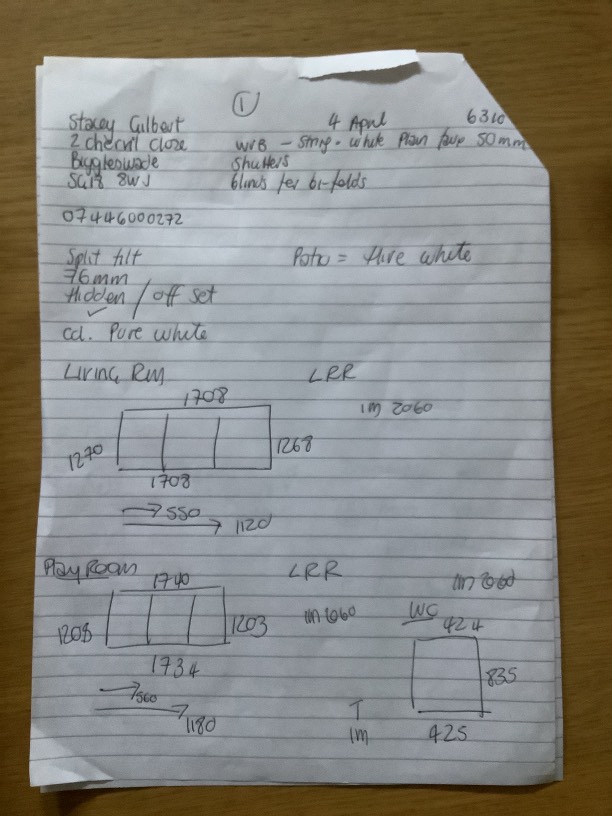 ①
Stacey Gilbert 4 April 6310
2 chervil close WVB - string - white Plain pure 50mm
Biggleswade Shutters
SG18 8WJ blinds for bi-folds
07446000272
Split tilt = Hire white
76mm
Hidden / off set
✓
Col. Pure white
Living RM LRR
1708
1m 2060
1270 1268
1708
550
1120
Play Room LRR 1m 2060
1740
WC
424
1208 1203 1m 2060
835
1734
560
T
1180 1m 425